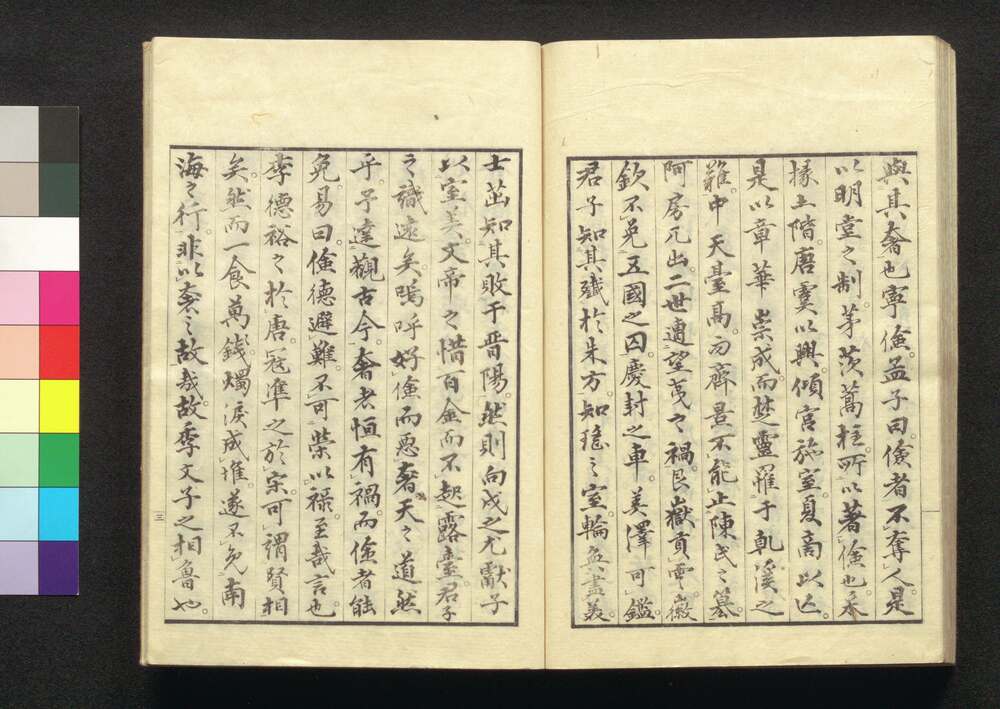 與其奢也寧儉。孟子曰。儉者不奪人。是
以明堂之制。茅茨蒿柱。所以著儉也。采
椽土階。唐虞以興。傾宮旋室。夏商以亡。
是以章華崇成而楚靈罹于乾溪之
難。中天臺高。而齊景不能止陳氏之篡。
阿房兀出。二世遭望夷之禍。艮嶽貢雲。徽
欽不免五國之囚。慶封之車。美澤可鑑。
君子知其殲於朱方。知瑤之室。輪奐盡美。
士茁知其敗于晋陽。然則向戌之尤獻子
以室美。文帝之惜百金而不起露臺。君子
之識遠矣。嗚呼。好儉而惡奢。天之道然
乎。予達觀古今。奢者恒有禍。而儉者能
免。易曰。儉德避難。不可榮以祿。至哉言也
李德裕之於唐。寇準之於宋。可謂賢相
矣。然而一食萬錢。燭淚成堆。遂不免南
海之行。非以奢之故哉。故季文子之相魯也。
三